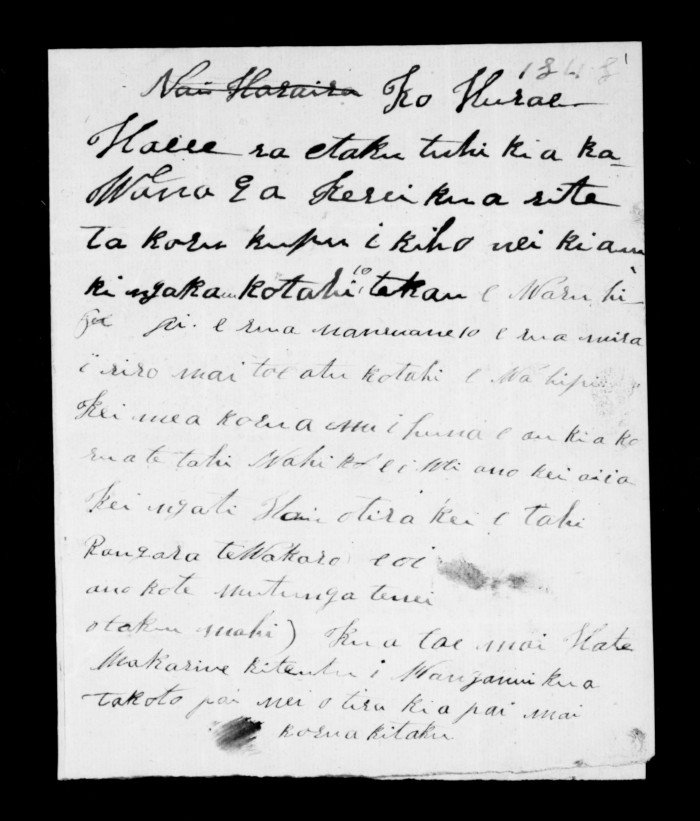 1848
Nau Haraira Ko Hurae
Haere ra etaku tuhi ki a ka
Wana E a Kerei kua rite
ta koru kupu i kiho nei ki au
ki ngaka kotahi 10 tekau e Waru hi
pi. e rua e rua
i riro mai toe atu kotahi e Wa hipi
Kei mea korua i huna e au ki a ko
rua te tahi Wahi ano kei
Kei ngati otira kei e tahi
Rangara teWakaro e oi
ano kote mutunga tenei
otaku mahi) Kua tae mai Hate
Makarine kitentu i Wanganui kua
takoto pai nei otira kia pai mai
korua kitaku